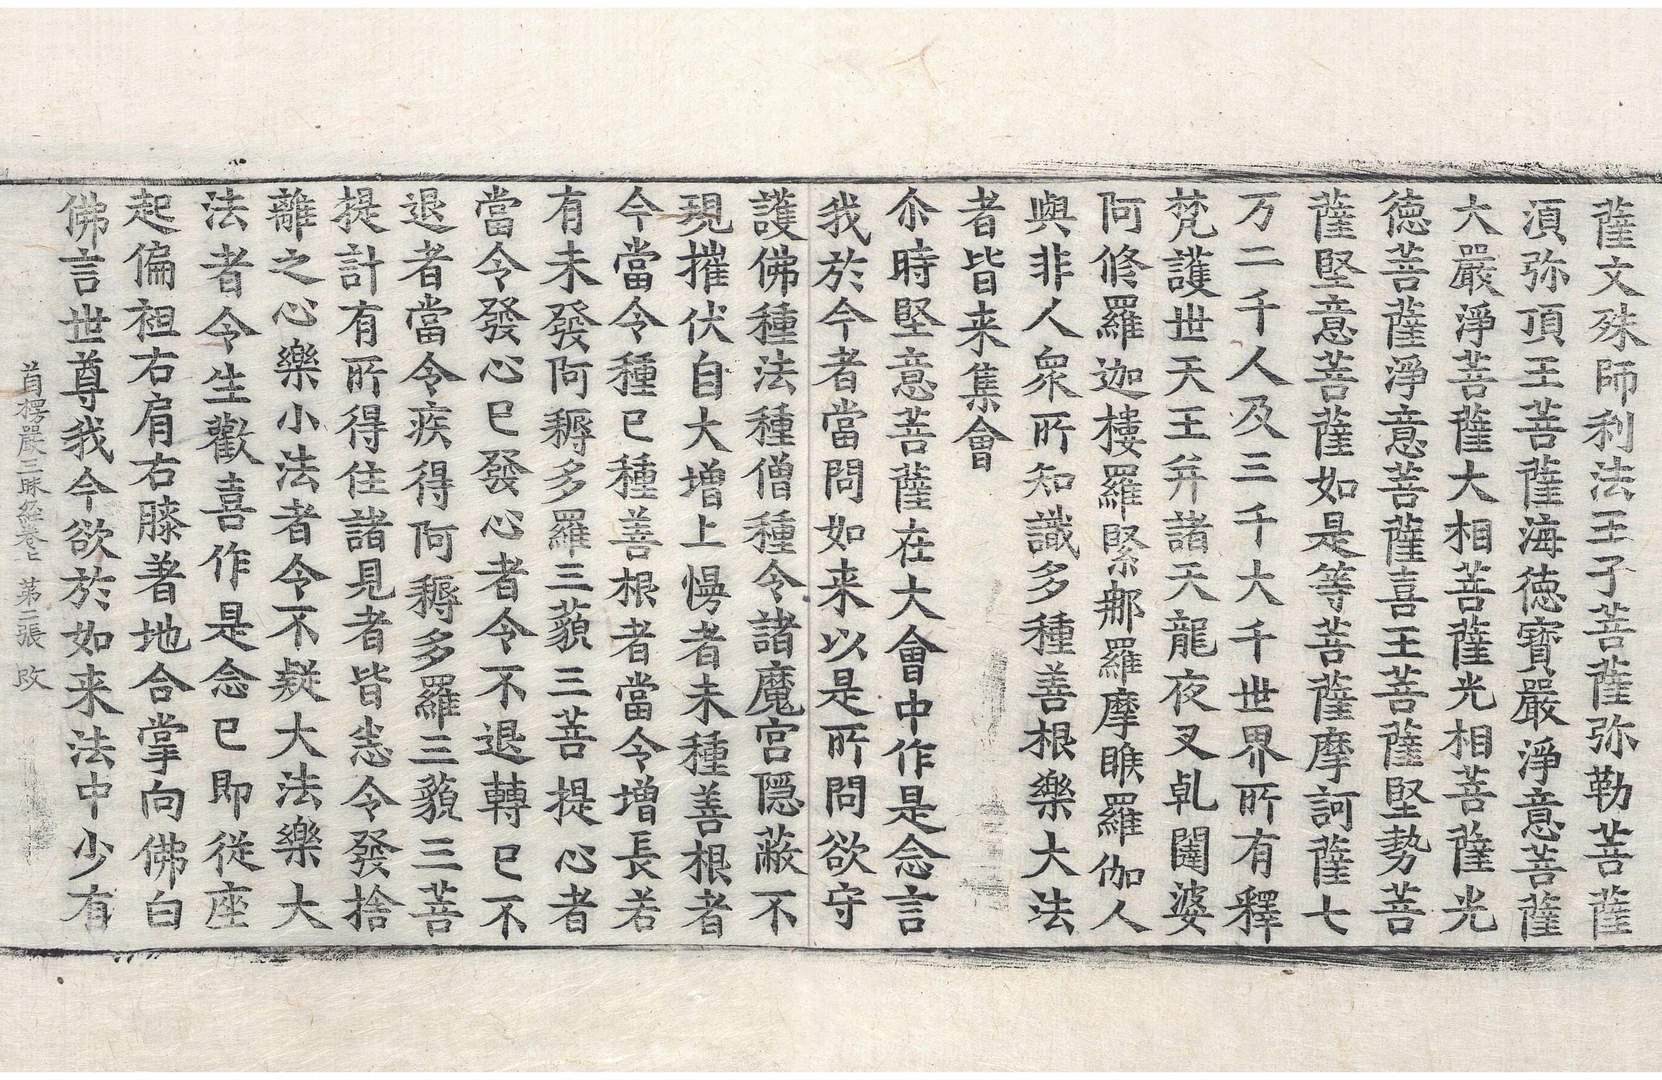 薩文殊師利法王子菩薩弥勒菩薩
湏弥頂王菩薩海徳寳嚴淨意菩薩
大嚴淨菩薩大相菩薩光相菩薩光
徳菩薩淨意菩薩喜王菩薩堅勢菩
薩堅意菩薩如是等菩薩摩訶薩七
万二千人及三千大千世界所有釋
梵護世天王并諸天龍夜叉乹闥婆
阿修羅迦樓羅緊那羅摩睺羅伽人
與非人衆所知識多種善根樂大法
者皆来集會
尒時堅意菩薩在大會中作是念言
我於今者當問如来以是所問欲守
護佛種法種僧種令諸魔宮隱蔽不
現摧伏自大增上慢者未種善根者
今當令種已種善根者當令增長若
有未發阿耨多羅三藐三菩提心者
當令發心已發心者令不退轉已不
退者當令疾得阿耨多羅三藐三菩
提計有所得住諸見者皆悉令發捨
離之心樂小法者令不疑大法樂大
法者令生歡喜作是念已即從座
起偏袒右肩右膝著地合掌向佛白
佛言世尊我今欲於如来法中少有
首楞嚴三昧經卷上 第二張 改